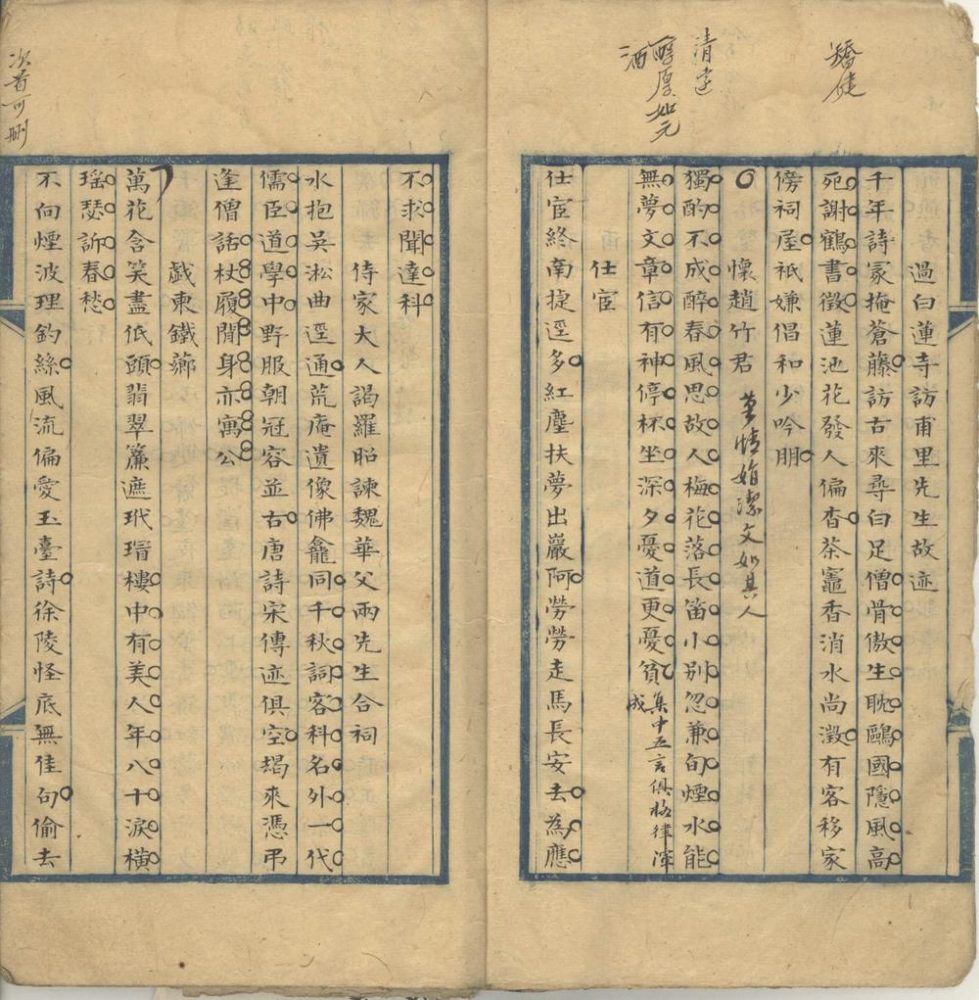 矯健
清建
醇厚如元
酒
過白蓮寺訪甫里先生故迹
千年詩冢掩蒼藤訪古來尋白足僧骨傲生耽鷗國隱風高
宛謝鶴書徵蓮池花發人偏杳茶竈香消水尚澂有客移家
傍祠屋祇嫌倡和少吟朋
懷趙竹君 苹情娟潔文如其人
獨酌不成醉春風思故人梅花落長笛小別忽兼旬煙水能
無夢文章信有神停杯坐深夕憂道更憂貧 集中五言俱格律渾
成
仕宦
仕宦終南捷逕多紅塵扶夢出巖阿勞勞走馬長安去為應
不求聞達科
侍家大人謁羅昭諫魏華父兩先生合祠
水抱吳淞曲逕通荒庵遺像佛龕同千秋詞客科名外一代
儒臣道學中野服朝冠容並古唐詩宋傳迹俱空朅來憑弔
逢僧話杖履閒身亦寓公
戲柬鐵薌
萬花含笑盡低頭翡翠簾遮玳瑁樓中有美人年八十淚橫
瑤瑟訴春愁
次首可刪
不向煙波理釣絲風流偏愛玉臺詩徐陵怪底無佳句偷去